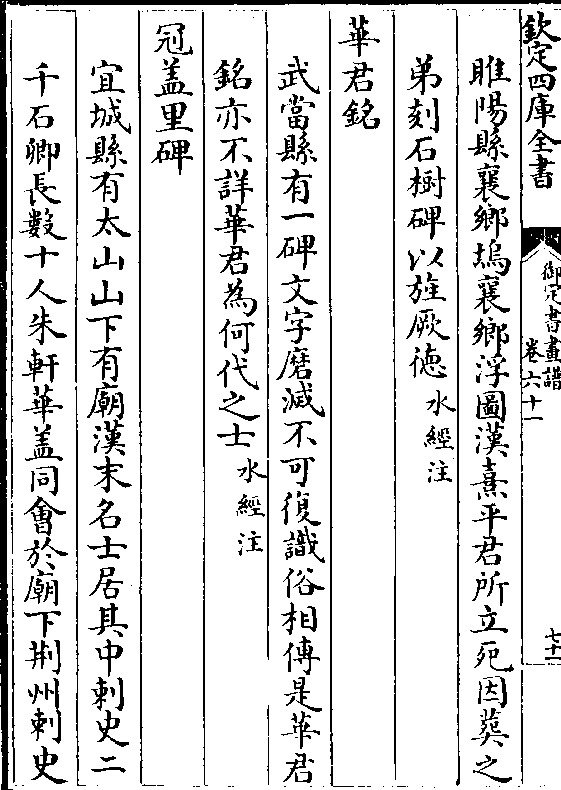 欽定四庫全書
御定書畫譜
卷六十一
七十一
睢陽縣襄鄉塢襄鄉浮圖漢熹平君所立死因葬之
弟刻石樹碑以旌厥德水經注
華君銘
武當縣有一碑文字磨滅不可復識俗相傳是華君
銘亦不詳華君為何代之士水經注
冠盖里碑
宜城縣有太山山下有廟漢末名士居其中刺史二
千石卿長數十人朱軒華盖同會於廟下荆州刺史